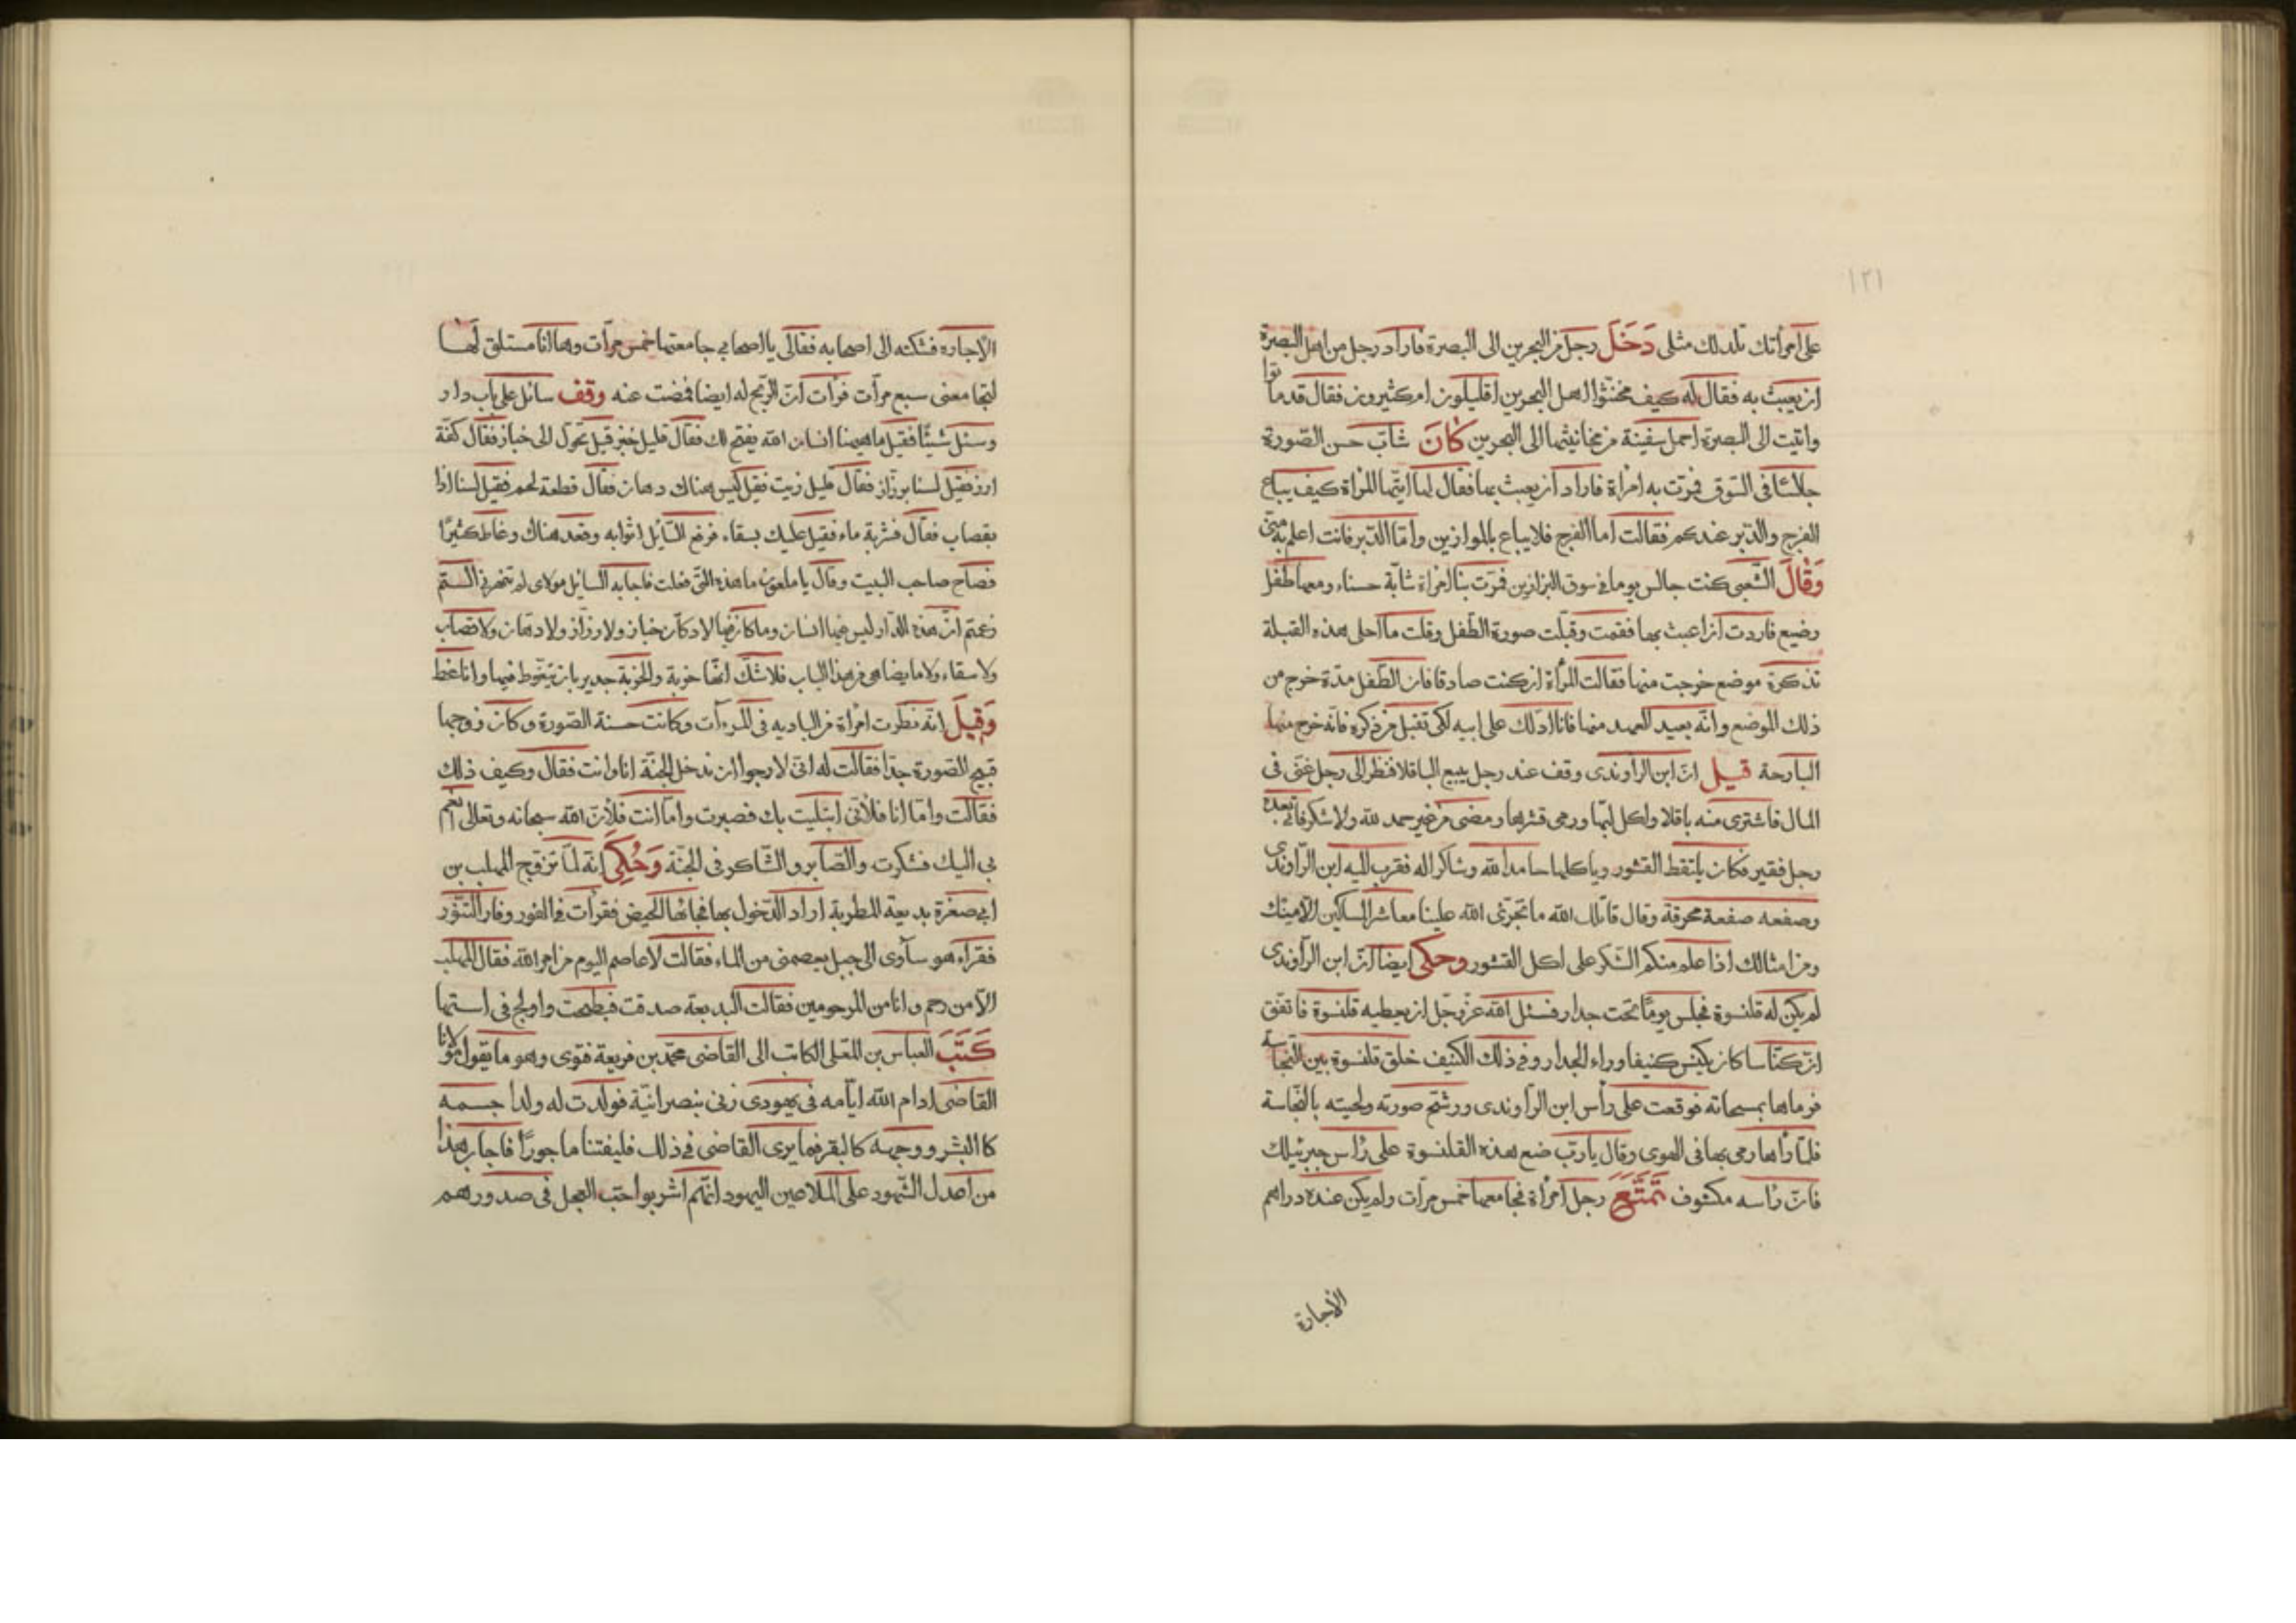 ١٢١
على امرأتك تلد لك مثلى دَخَلَ رجل من البحرين الى البصرة فاراد رجل من اهل البصرة
ان يعبث به فقال له كيف مخنّثوا اهل البحرين اقليلون ام كثيرون فقال قد ماتوا
واتيت الى البصرة احمل سفينة من مخانيثها الى البحرين كَانَ شابّ حسن الصّورة
جالسًا فى السّوق فمرّت به امرأة فاراد ان يعبث بها فقال لها ايّتها المرأة كيف يباع
الفرج والدّبر عندكم فقالت اما الفرج فلا يباع بالموازين وامّا الدّبر فانت اعلم به منّى
وَقَالَ الشّعبى كنت جالس يوما فى سوق البزازين فمرّت بنا امرأة شابّة حسناء ومعها طفل
رضيع فاردت ان اعبث بها فقمت وقبّلت صورة الطّفل وقلت ما احلى هذه القبلة
تذكرة موضع خرجت منها فقالت المرأة ان كنت صادقا فان الطّفل مدّة خرج من
ذلك الموضع وانّه بعيد العهد منها فانا ادلّك على ابيه لكى تقبل من ذكره فانّه خرج منها
البارحة قيل انّ ابن الرّاوندى وقف عند رجل يبيع الباقلا فنظر الى رجل غنّى فى
المال فاشترى منه باقلا واكل لبّها ورمى قشرها ومضى من غير حمد للّه ولا شكر فاتى بعده
رجل فقير فكان يلتقط القشور وياكلها حامدا للّه وشاكرا له فقرب اليه ابن الرّاوندى
وصفعه صفعة محرقة وقال قاتلك اللّه ما تجرّئ اللّه علينا معاشر المساكين الّا منك
ومن امثالك اذا علم منكم الشّكر على اكل القشور وحكى ايضا انّ ابن الرّاوندى
لم يكن له قلنسوة فجلس يومًا تحت جدار فسئل اللّه عزّ وجلّ ان يعطيه قلنسوة فاتّفق
انّ كنّاسا كان يكنس كنيفا وراء الجدار وفى ذلك الكنيف خلق قلنسوة بين النّجاسة
فرماها بمسحاته فوقعت على رأس ابن الرّاوندى ورشّتم صورته ولحيته بالنّجاسة
فلمّا رأها رمى بها فى الهوى وقال يا ربّ ضع هذه القلنسوة على رأس جبرئيلك
فانّ رأسه مكشوف تَمَتَّعَ رجل امرأة فجامعها خمس مرّات ولم يكن عنده دراهم
الاجارة
الاجاره فشكته الى اصحابه فقال لى يا اصحابي جامعتها خمس مرّات وها انا مستلق لَها
لتجامعنى سبع مرّات فرأت انّ الرّبح له ايضا فمضت عنه وقف سائل على باب دار
وسئل شيئًا فقيل ما هيهنا انسان اللّه يفتح لك فقال قليل خبز قيل تحوّل الى خباز فقال كفّة
ارز فقيل لسنا برزّاز فقال قليل زيت فقيل كيس هناك دهان فقال قطعة لحم فقيل لسنا اذا
بقصاب فقال فشربة ماء فقيل عليك بسقاء فرفع السّايل اثوابه وقعد هناك وغاط كثيرًا
فصاح صاحب البيت وقال يا ملعون ما هذه التى فعلت فاجابه السايل مولاى لم تنهرنى الستم
زعمتم انّ هذه الدّار ليس فيها انسان وما كان فيها لا دكّان خباز ولا رزّاز ولا دهّان ولا قصاب
ولا سقاء ولا ما يضاهى من هذا الباب فلا شكّ انّها خربة والخربة جدير بان يتغوّط فيها وانا غط
وَقِيلَ انّه نظرت امرأة من الباديه فى المرءآت وكانت حسنة الصّورة وكان زوجها
قبيح الصّورة جدّا فقالت له انّى لارجوا ان ندخل الجنّة انا وانت فقال وكيف ذلك
فقالت وامّا انا فلأنّى ابتليت بك فصبرت وامّا انت فلأنّ اللّه سبحانه وتعالى انعم
بي اليك فشكرت والصّابر والشّاكر فى الجنّة وَحُكِيَ انّه لمّا تزوّج المهلب بن
ابي صغرة بديعة المطربة اراد الدّخول بها فجاءها الحيض فقرأت فى الفور وفار التّنّور
فقراء هو سآوى الى جبل يعصمنى من الماء فقالت لا عاصم اليوم من امر اللّه فقال المهلب
الّا من رحم وانا من المرحومين فقالت البديعة صدقت فبطحت واولج فى استها
كَتَبَ العباس بن المعلى الكاتب الى القاضى محمّد بن قريعة فتوى وهو ما يقول مولانا
القاضى ادام اللّه ايّامه فى يهودى زنى بنصرانيّة فولدت له ولدا جسمه
كالبشر ووجهه كالبقر فما يرى القاضى فى ذلك فليفتنا ماجورًا فاجاب هذا
من اعدل الشّهود على الملاعين اليهود انّهم اشربوا حبّ العجل فى صدورهم